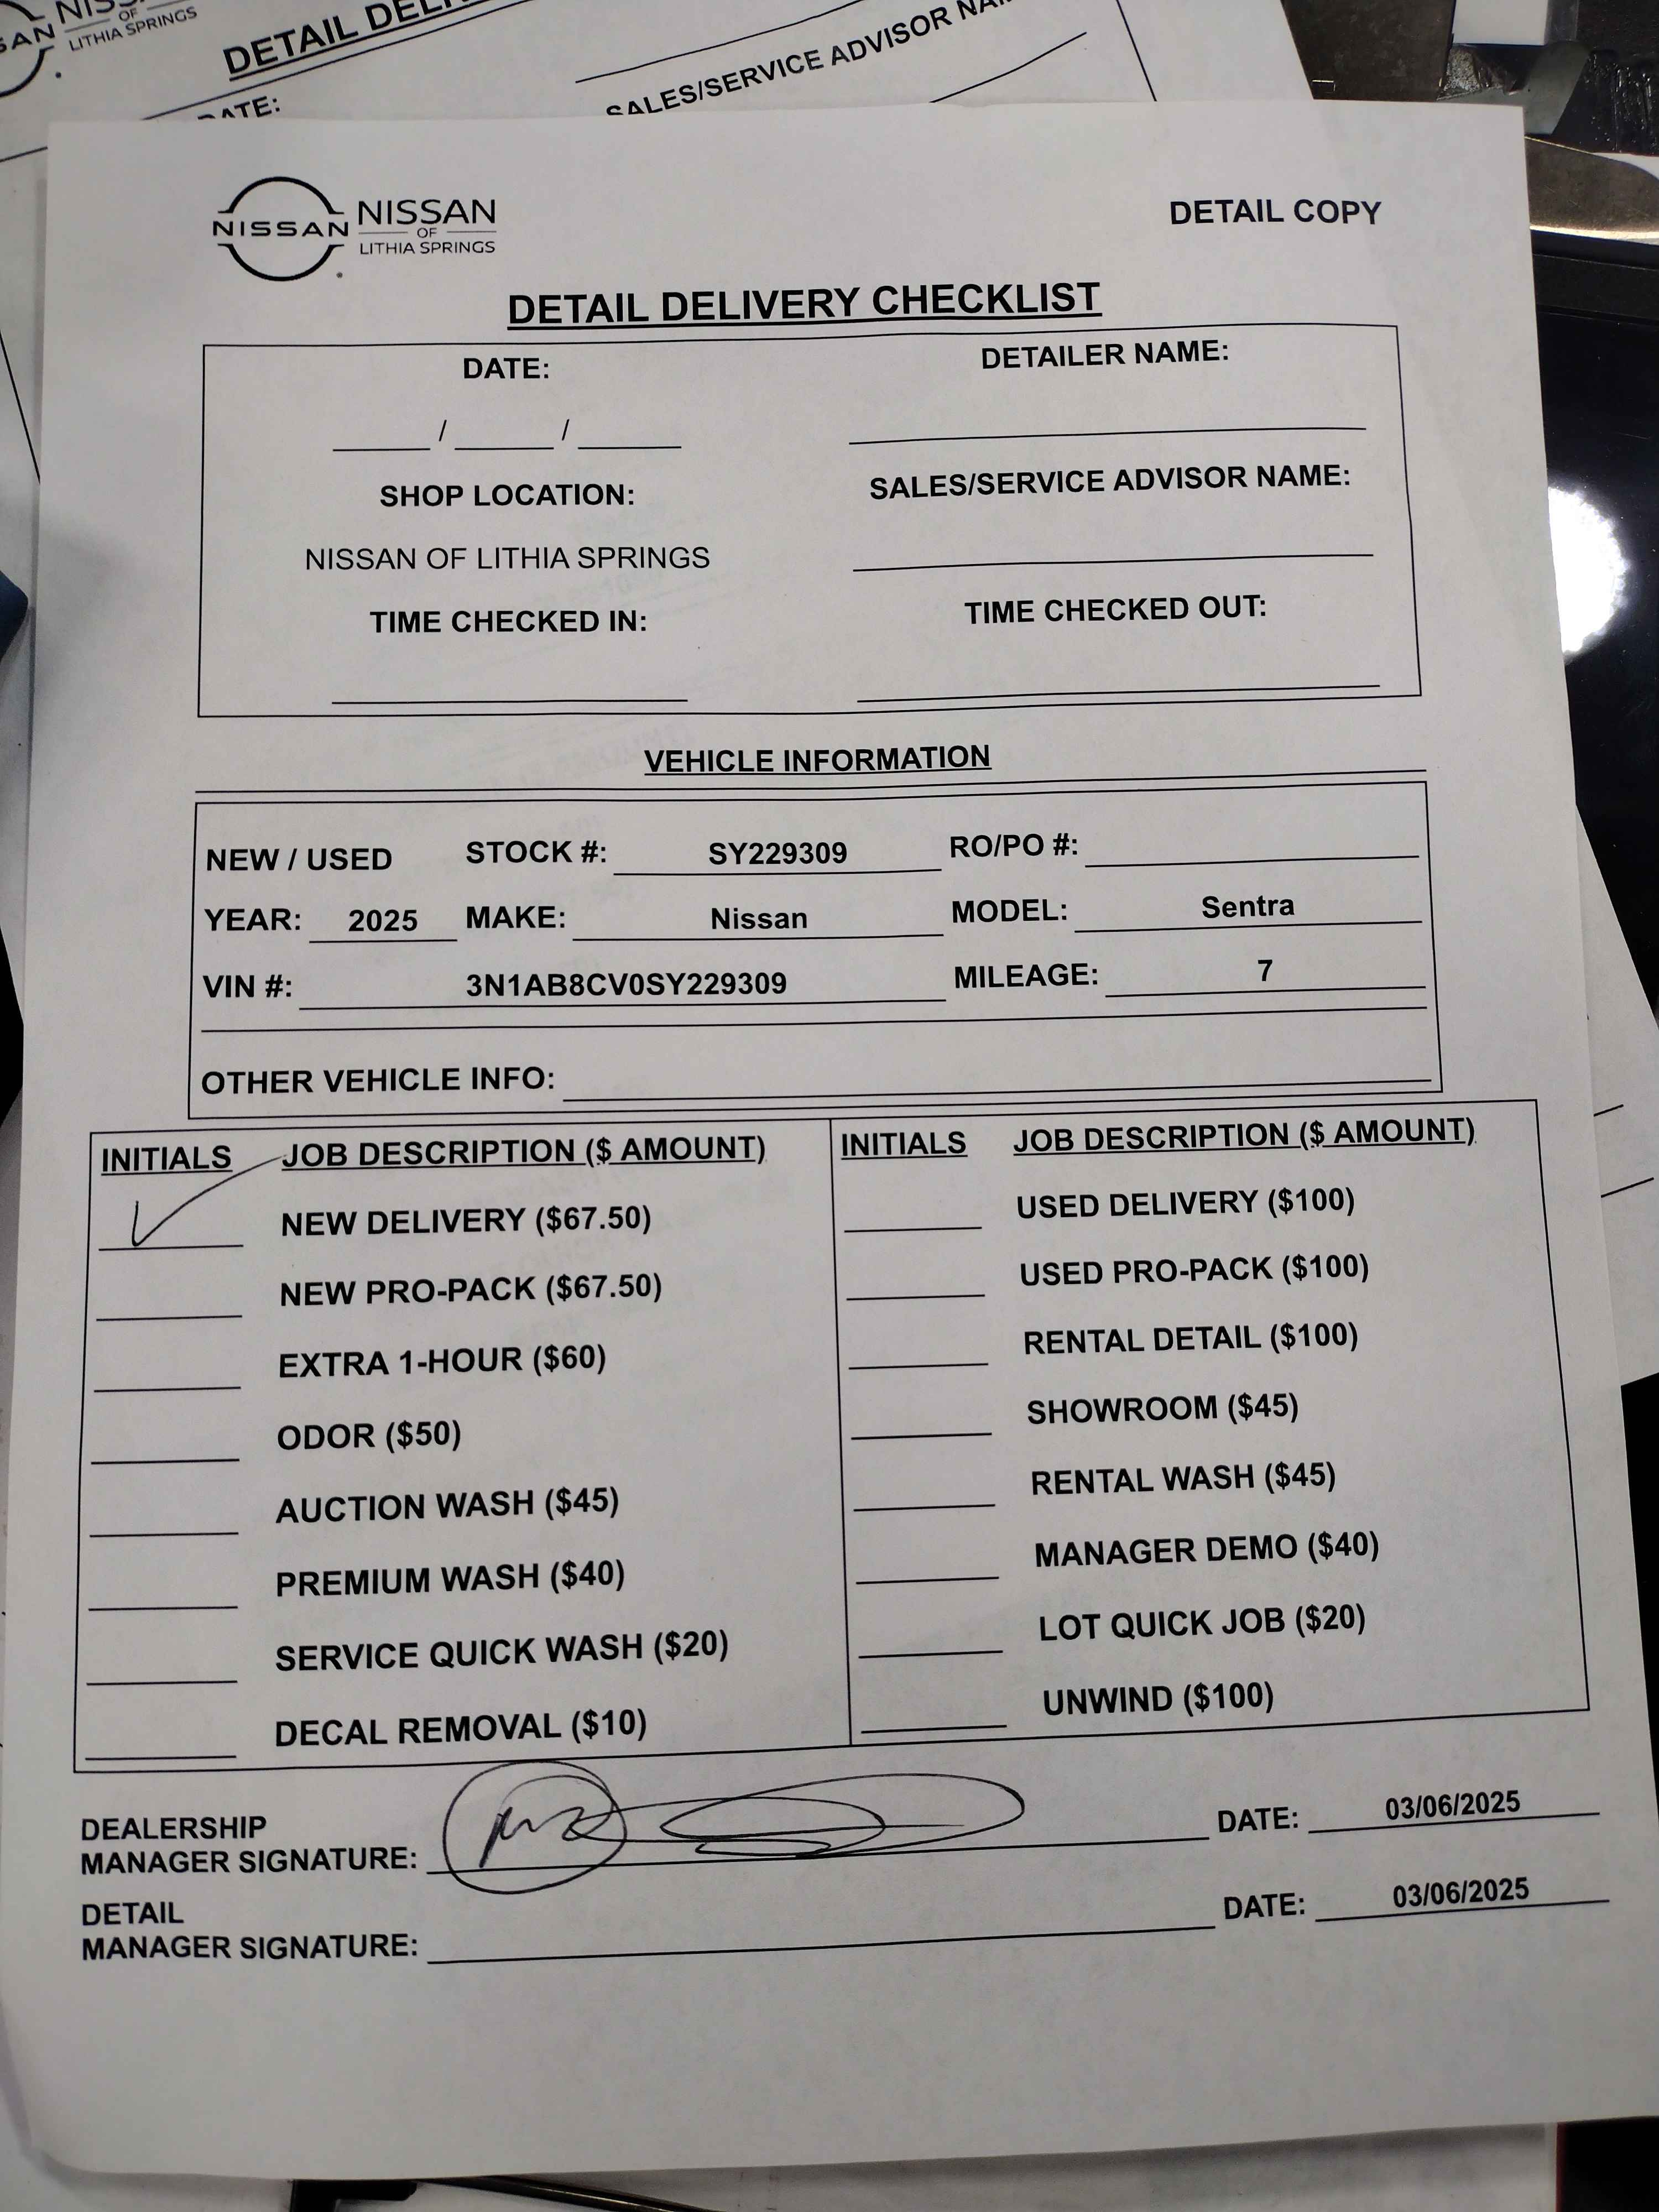 NISSAN
OF
LITHIA SPRINGS
DETAIL
DATE:
SALES/SERVICE ADVISOR
NISSAN
NISSAN
OF
LITHIA SPRINGS
DETAIL COPY
DETAIL DELIVERY CHECKLIST
DATE:
DETAILER NAME:
/ /
SHOP LOCATION:
SALES/SERVICE ADVISOR NAME:
NISSAN OF LITHIA SPRINGS
TIME CHECKED IN:
TIME CHECKED OUT:
VEHICLE INFORMATION
NEW / USED STOCK #: SY229309 RO/PO #:
YEAR: 2025 MAKE: Nissan MODEL: Sentra
VIN #: 3N1AB8CV0SY229309 MILEAGE: 7
OTHER VEHICLE INFO:
INITIALS JOB DESCRIPTION ($ AMOUNT)
NEW DELIVERY ($67.50)
NEW PRO-PACK ($67.50)
EXTRA 1-HOUR ($60)
ODOR ($50)
AUCTION WASH ($45)
PREMIUM WASH ($40)
SERVICE QUICK WASH ($20)
DECAL REMOVAL ($10)
INITIALS JOB DESCRIPTION ($ AMOUNT)
USED DELIVERY ($100)
USED PRO-PACK ($100)
RENTAL DETAIL ($100)
SHOWROOM ($45)
RENTAL WASH ($45)
MANAGER DEMO ($40)
LOT QUICK JOB ($20)
UNWIND ($100)
DEALERSHIP
MANAGER SIGNATURE: DATE: 03/06/2025
DETAIL
MANAGER SIGNATURE: DATE: 03/06/2025